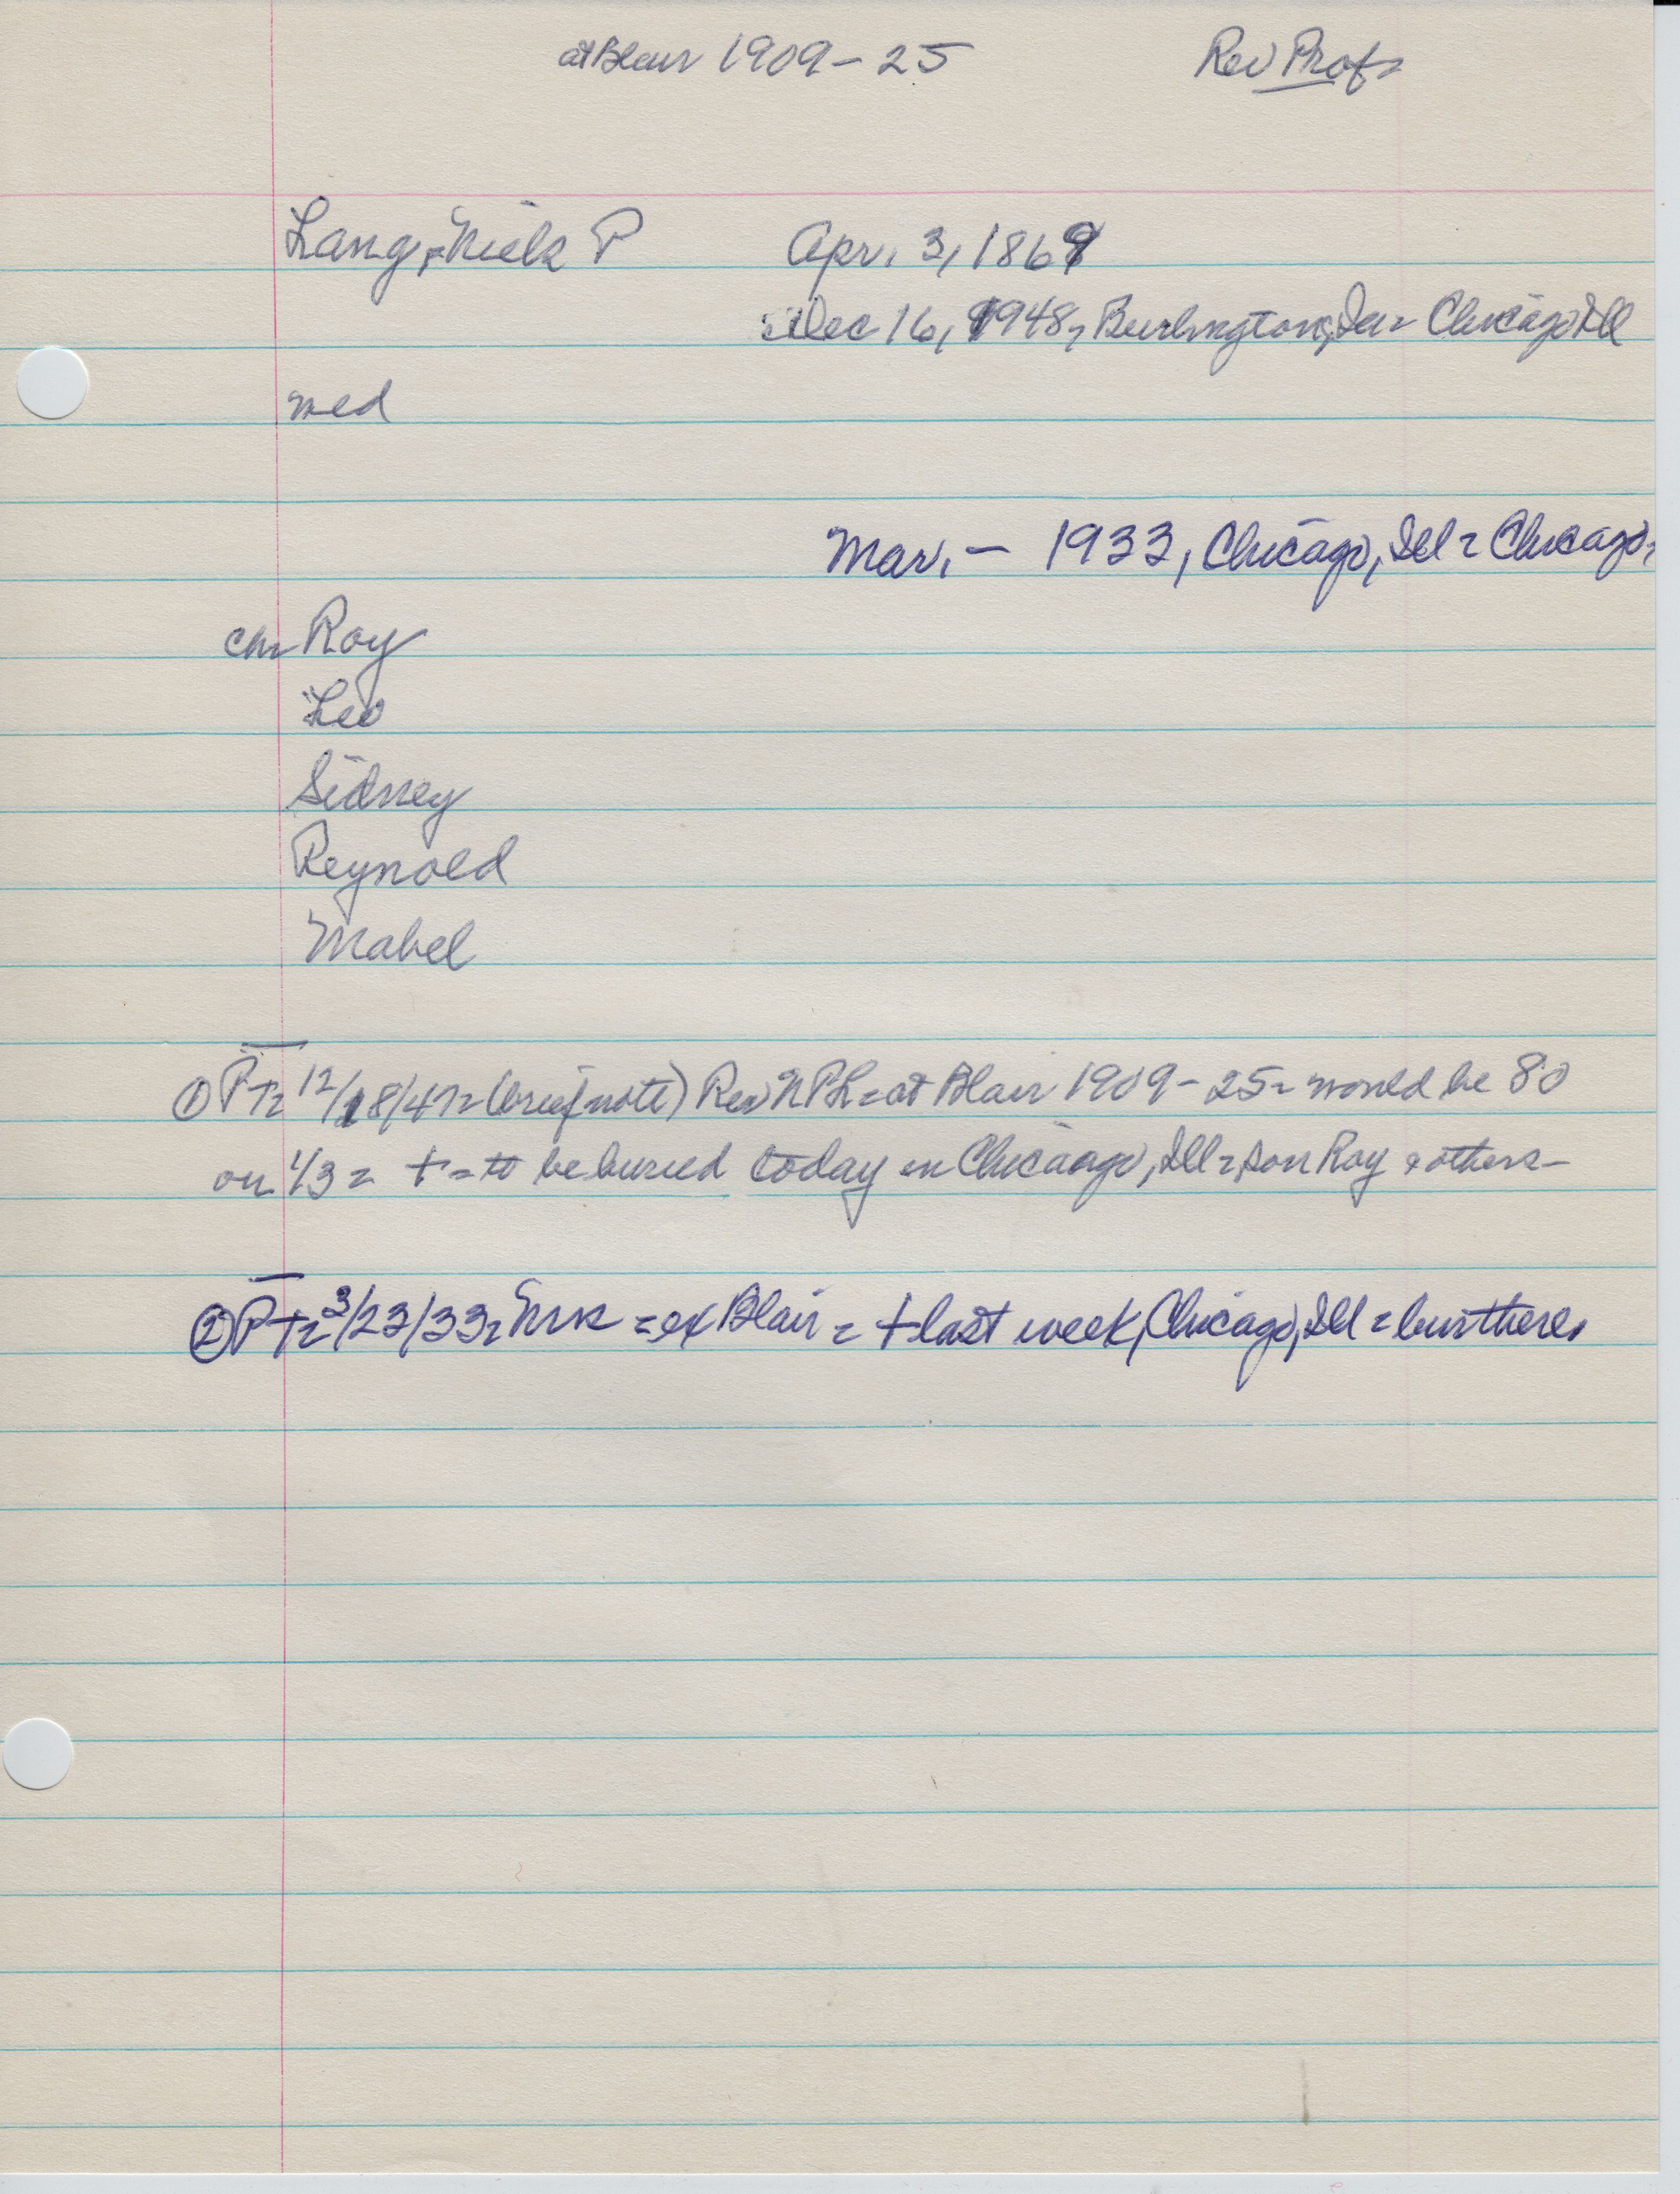 at Blair 1909-25 Rev Prof=
Lang, Niels P Apr. 3, 1869
Dec 16, 1948, Burlington, Ia = Chicago Ill
med
Mar. - 1933, Chicago, Ill = Chicago,
ch= Roy
Leo
Sidney
Reynold
Mabel
① PT= 12/18/47= (brief note) Rev NPL= at Blair 1909-25= would be 80
on 1/3 = + = to be buried today in Chicago, Ill=, son Roy & others-
② PT= 3/23/33= Mrs = ex Blair = + last week, Chicago, Ill = bur there.